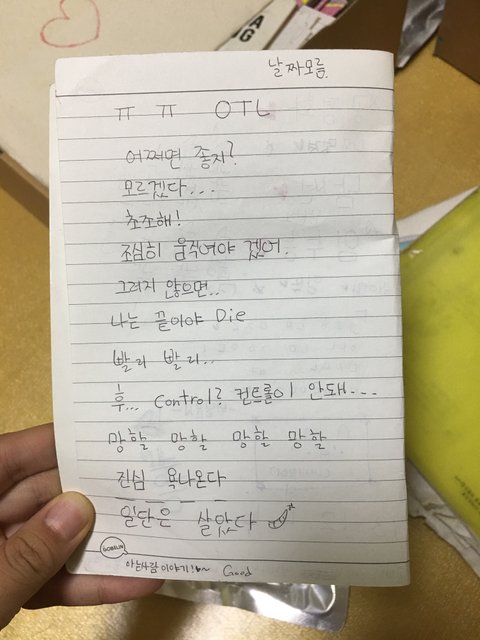 날짜모름
ㅠ ㅠ OTL
어쩌면 좋지?
모르겠다...
초조해!
조심히 움직여야 겠어.
그러지 않으면..
나는 끝이야 Die
빨리 빨리..
후... Control? 컨트롤이 안돼...
망할 망할 망할 망할
진심 욕나온다
일단은 살았다
GOBLIN
아는사람이야기!~
Good